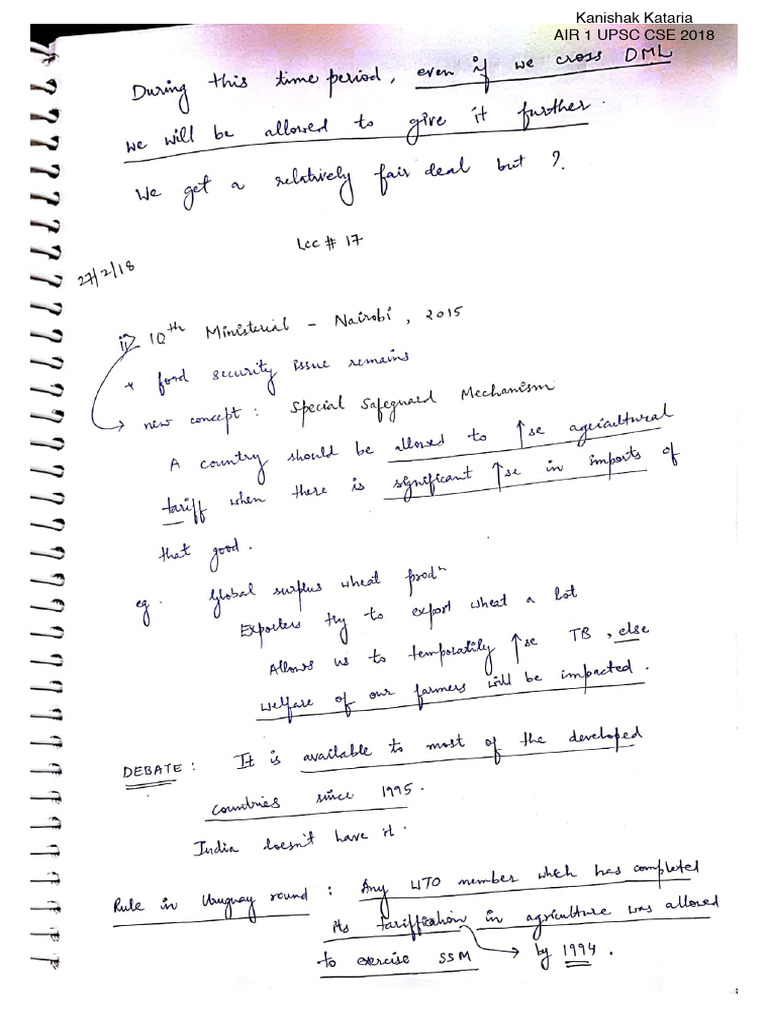 Kanishak Kataria
AIR 1 UPSC CSE 2018
During this time period, even if we cross DML
we will be allowed to give it further.
We get a relatively fair deal but ?
Lec # 17
27/2/18
ii) 10th Ministerial - Nairobi, 2015
* food security issue remains
→ new concept : Special Safeguard Mechanism
A country should be allowed to ↑se agricultural
tariff when there is significant ↑se in imports of
that good.
eg. Global surplus wheat prodn
Exporters try to export wheat a lot
Allows us to temporatily ↑se TB, else
welfare of our farmers will be impacted.
DEBATE : It is available to most of the developed
countries since 1995.
India doesn't have it.
Rule in Uruguay round : Any WTO member which has completed
its tariffication in agriculture was allowed
to exercise SSM → by 1994.